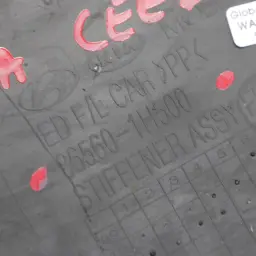 CEE
A
Glob
WA
ED F/L CNR >PP<
86560-1H500
STIFFENER ASSY